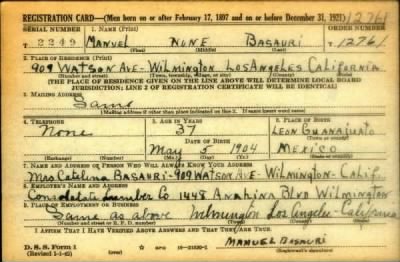 REGISTRATION CARD—(Men born on or after February 17, 1897 and on or before December 31, 1921) 12761
SERIAL NUMBER 1. NAME (Print) ORDER NUMBER
T 2249 MANUEL NONE BASAURI T 12761
(First) (Middle) (Last)
2. PLACE OF RESIDENCE (Print)
909 WATSON AVE - WILMINGTON LOS ANGELES CALIFORNIA
(Number and street) (Town, township, village, or city) (County) (State)
[THE PLACE OF RESIDENCE GIVEN ON THE LINE ABOVE WILL DETERMINE LOCAL BOARD
JURISDICTION; LINE 2 OF REGISTRATION CERTIFICATE WILL BE IDENTICAL]
3. MAILING ADDRESS
Same
[Mailing address if other than place indicated on line 2. If same insert word same]
4. TELEPHONE 5. AGE IN YEARS 6. PLACE OF BIRTH
None 37 LEON GUANAJUATO
DATE OF BIRTH (Town or county)
May 5 1904 MEXICO
(Exchange) (Number) (Mo.) (Day) (Yr.) (State or country)
7. NAME AND ADDRESS OF PERSON WHO WILL ALWAYS KNOW YOUR ADDRESS
Mrs CATALINA BASAURI - 909 WATSON AVE - WILMINGTON - CALIF.
8. EMPLOYER'S NAME AND ADDRESS
Consolidate Lumber Co 1448 ANAHINA BLVD WILMINGTON
9. PLACE OF EMPLOYMENT OR BUSINESS
Same as above Wilmington Los Angeles - California
(Number and street or R. F. D. number) (Town) (County) (State)
I AFFIRM THAT I HAVE VERIFIED ABOVE ANSWERS AND THAT THEY ARE TRUE.
D. S. S. Form 1
(Revised 1-1-42) MANUEL BASAURI
(Registrant's signature)